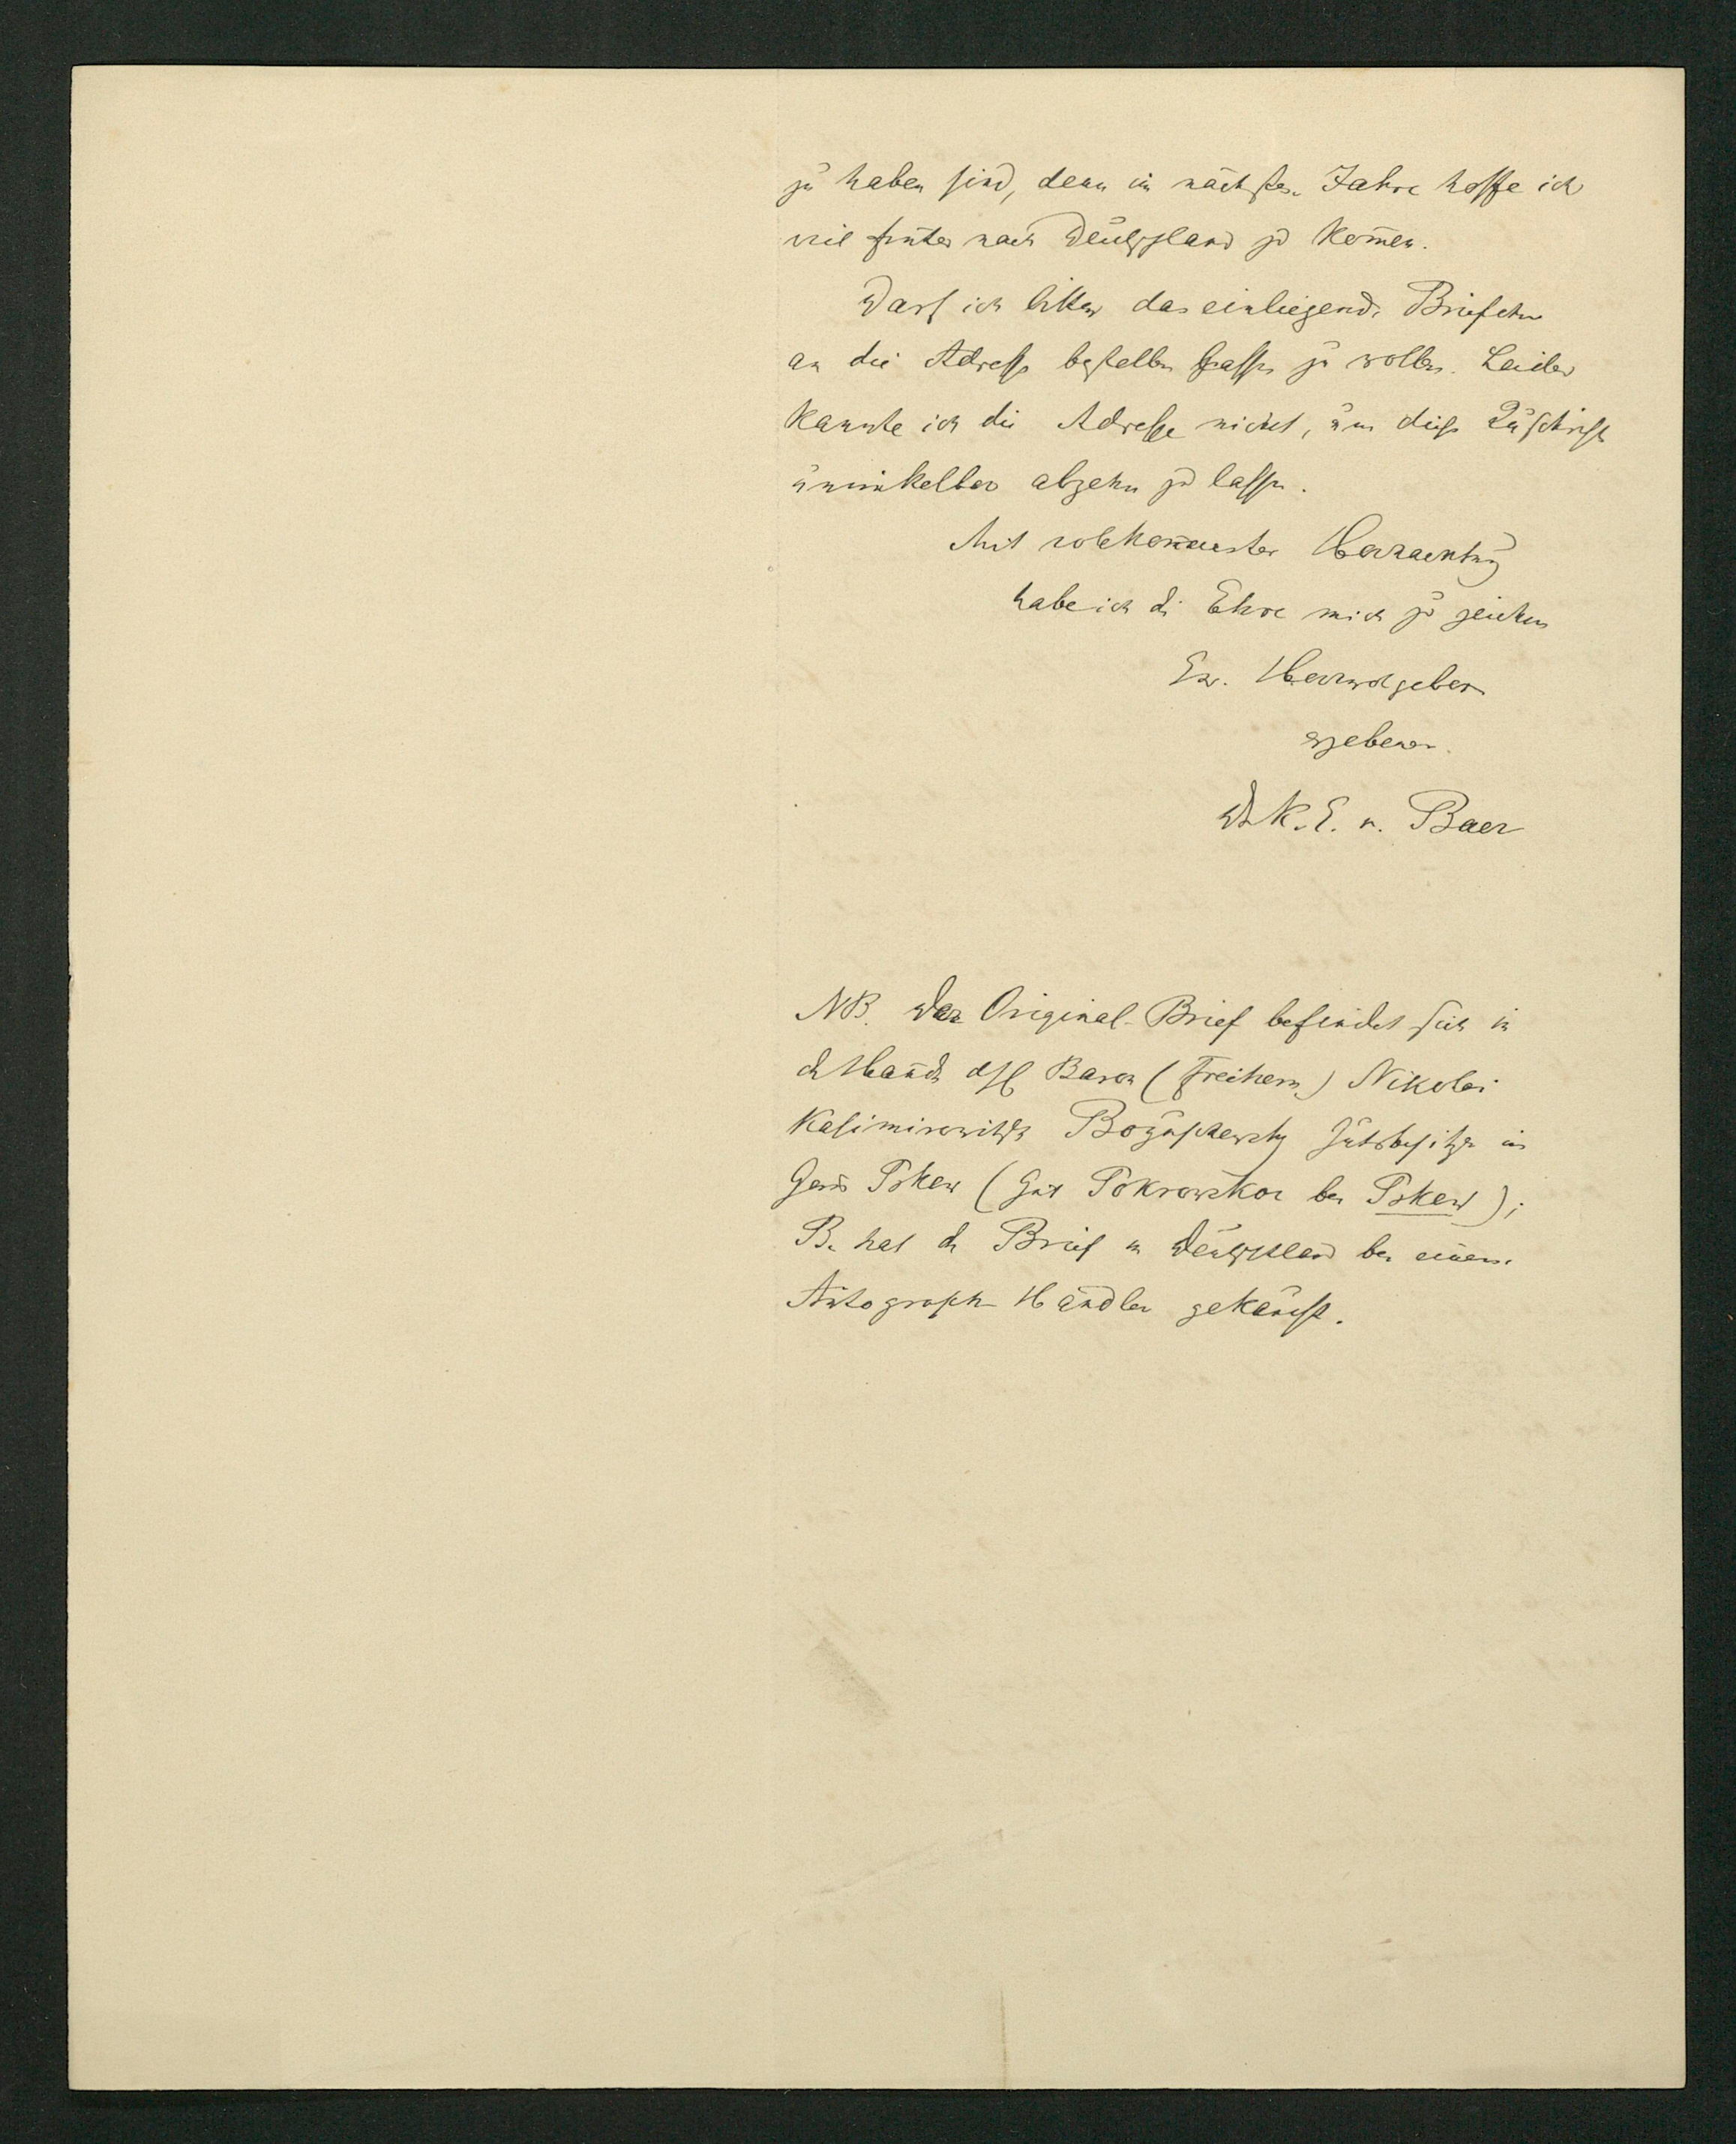 zu haben sind, denn im nächsten Jahre hoffe ich
viel früher nach Deutschland zu kom̄en.
Darf ich bitten das einliegende Briefchen
an die Adresse bestellen lassen zu wollen. Leider
kannte ich die Adresse nicht, um diese Zuschrift
unmittelbar abgehn zu lassen.
Mit vollkom̄enster Hochachtung
habe ich die Ehre mich zu zeichnen
Ew. Hochwolgeboren
ergebener.
Dr K. E. v. Baer
NB. Der Original-Brief befindet sich in
d Händen des H Baron (Freiherrn) Nikolai
Kasimirowitsch Boguschewsky Gutsbesitzer im
Gouv Pskow (Gut Pokrowskoe bei Pskow);
B. hat den Brief in Deutschland bei einem
Autograph-Händler gekauft.